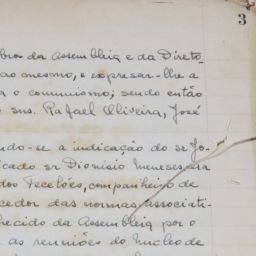 3
bros da Assembléia e da Direto-
ao mesmo, e expresar-lhe a
r o communismo; sendo então
sns. Rafael Oliveira, José
ndo-se a indicação do sr Jo-
icado sr Dionisio Meneses
dos Tecelões, companheiro de
cedor das normas associati-
hecido da Assembléia por o
as reuniões do Nucleo de